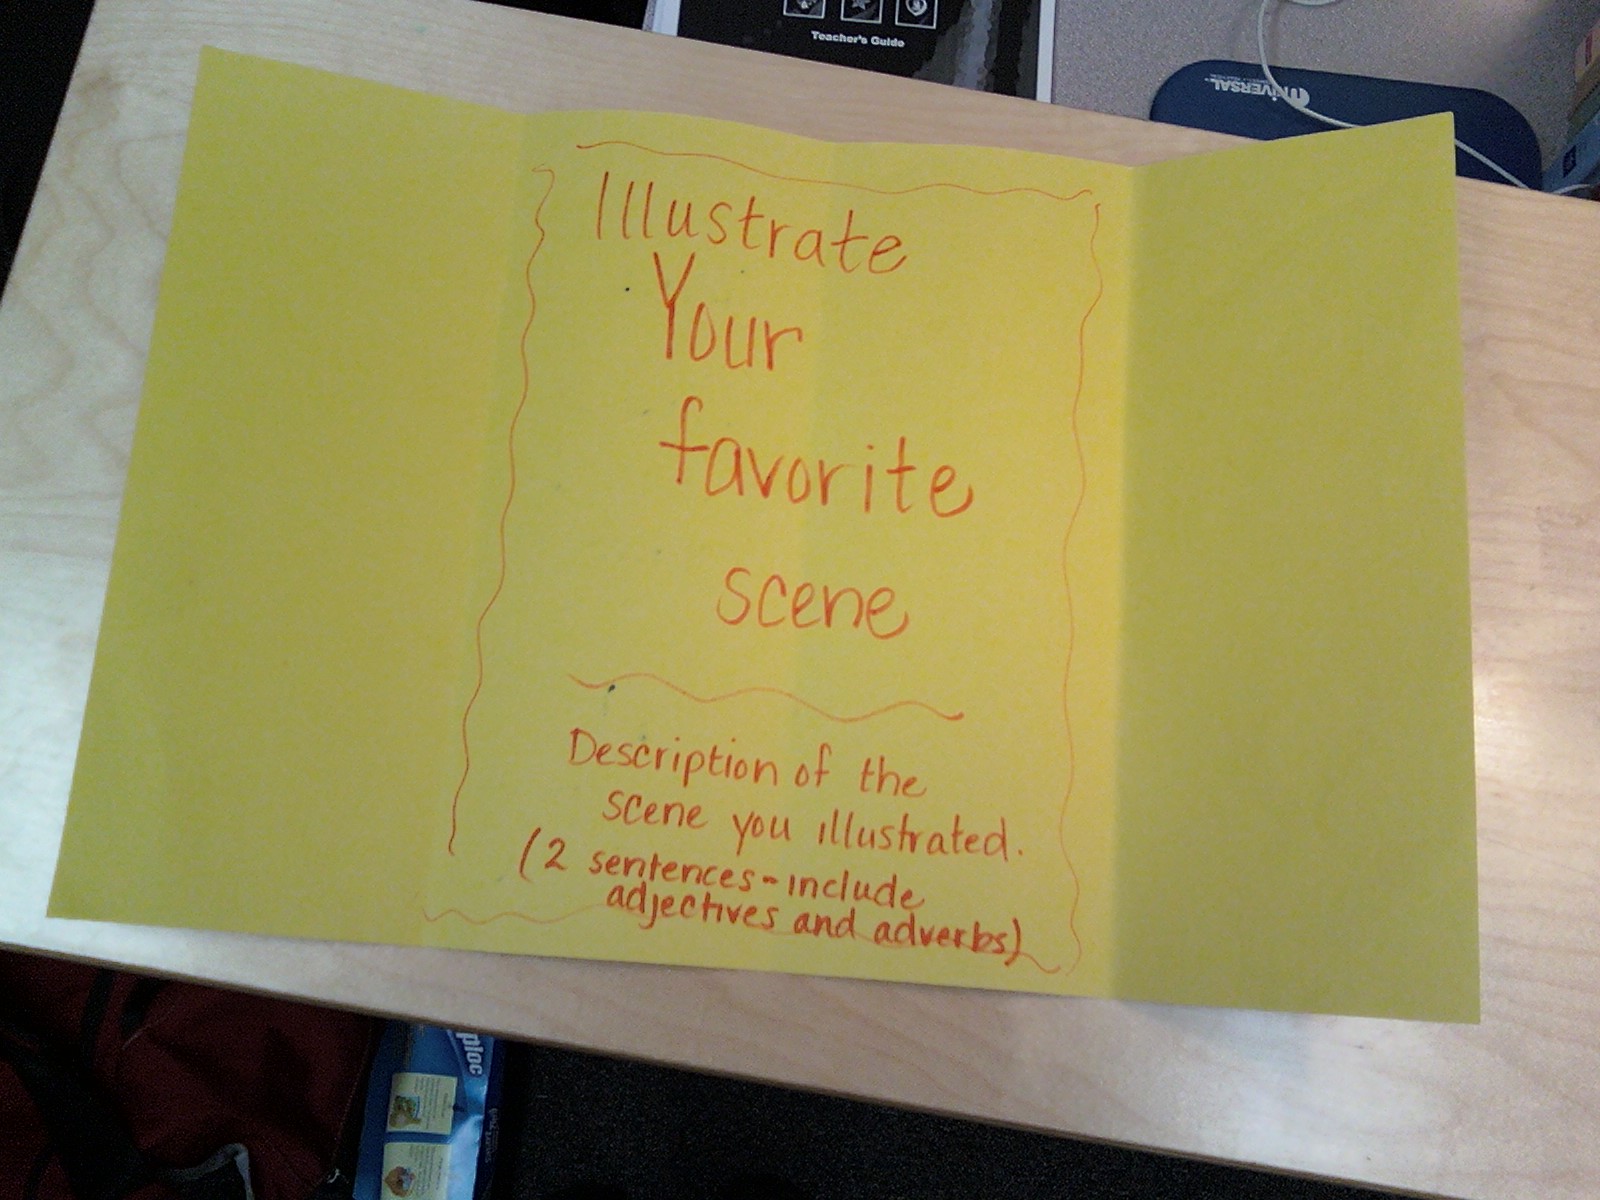 Teacher's Guide
UNIVERSAL
Illustrate
Your
favorite
scene
Description of the
scene you illustrated.
(2 sentences-include
adjectives and adverbs)
ploc